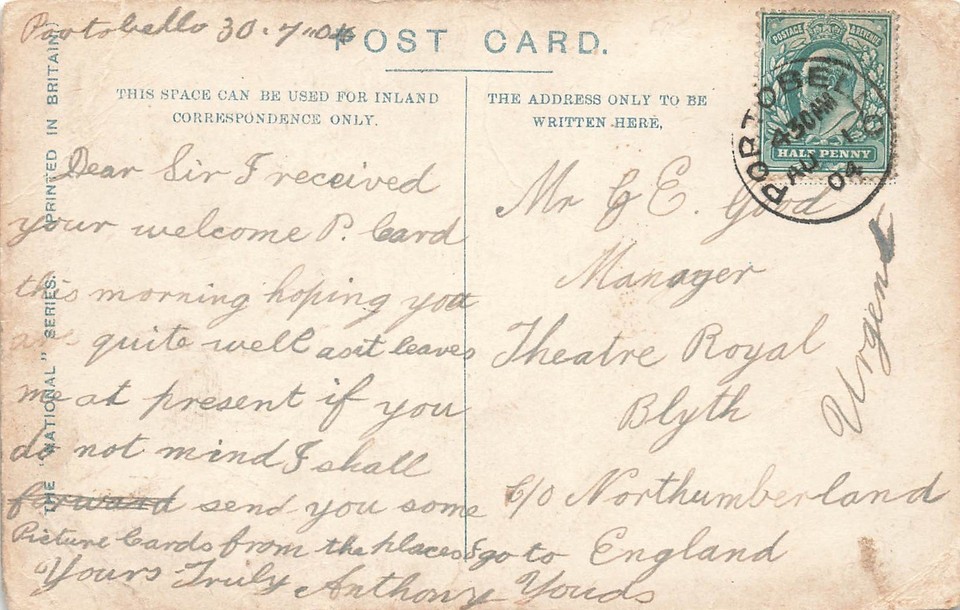 Portobello 30.7"04
POST CARD.
THE "NATIONAL" SERIES. PRINTED IN BRITAIN.
THIS SPACE CAN BE USED FOR INLAND
CORRESPONDENCE ONLY.
Dear Sir I received
your welcome P. Card
this morning hoping you
are quite well as it leaves
me at present if you
do not mind I shall
forward send you some
Picture Cards from the places I go to
Yours Truly Anthony Youds
THE ADDRESS ONLY TO BE
WRITTEN HERE,
Mr G E. Good
Manager
Theatre Royal
Blyth
C/O Northumberland
England
Urgent
POSTAGE & REVENUE
HALF PENNY
PORTOBELLO
430AM
AU 1
04